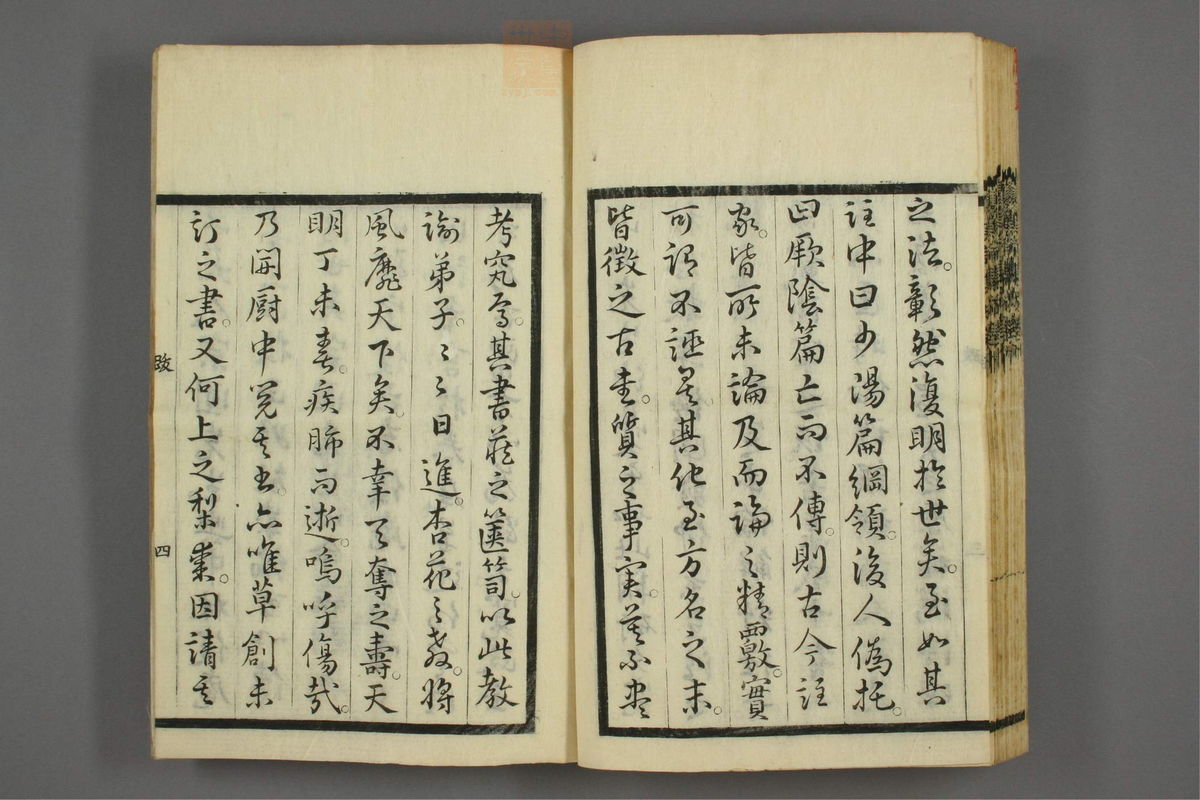 之法。彰然復明於世矣。至如其
註中曰少陽篇綱領。後人偽托。
曰厥陰篇亡而不傳。則古今註
家。皆所未論及而論之精覈。實
可謂不誣矣。其他至方名之末。
皆徵之古書。質之事實莫不盡
考究焉。其書蔵之篋笥。以此教
諭弟子。〻〻日進。杏花之教。將
風靡天下矣。不幸天奪之壽。天
明丁未春。疾肺而逝。嗚呼傷哉。
乃開厨中覓其書。亦唯草創未
訂之書。又何上之梨棗。因請其
跋
四